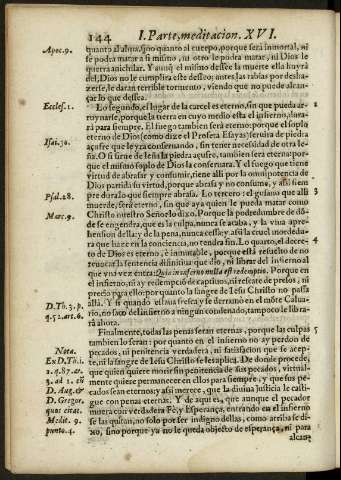 144 I. Parte, meditacion. XVI.
Apoc. 9. quanto al alma, sino quanto al cuerpo, porque será inmortal, ni
se podrá matar a si mismo, ni otro le podrá matar, ni Dios le
querrá aniquilar. Y aunq̃ el mismo dessee la muerte ella huyrá
del, Dios no le cumplirá este desseo; antes las rabias por deshazerse,
le daran terrible tormento, viendo que no puede alcançar
lo que dessea.
Eccles. 1. Lo segundo, el lugar de la carcel es eterno, sin que pueda arruynarse, 2
porque la tierra en cuyo medio esta el infierno, durará
para siempre. El fuego tambien será eterno: porque el soplo
eterno de Dios (como dize el Profeta Esayas) seruira de piedra
Isai. 30. açufre que le yra conseruando, sin tener necessidad de otra leña.
O si sirue de leña la piedra açufre, tambien será eterna: porque
el mismo soplo de Dios la conseruara. Y el fuego que tiene
virtud de abrasar y consumir, tiene alli por la omnipotencia de
Dios partida su virtud, porque abrasa y no consume, y assi siempre
dura lo que siempre abrasa. Lo tercero: el gusano que alli 3
Psal. 28. muerde, será eterno, sin que aya quien le pueda matar como
Marc. 9. Christo nuestro Señor lo dixo. Porque la podredumbre de dõde
se engendra, que es la culpa, nunca se acaba, y la viua aprehension
della: y de la pena, nunca cessa: y assi la cruel mordedura
que haze en la conciencia, no tendra fin. Lo quarto, el decreto 4
de Dios es eterno, è inmutable, porque está resuelto de no
reuocar la sentencia difinitiua que dio, ni librar del infierno al
que vna vez entra: Quia in inferno nulla est redemptio. Porque en
el infierno, ni ay redempcion de captiuos, ni rescate de presos, ni
precio para ello: porque la sangre de Iesu Christo no passa
D. Th. 3. p. allà. Y si quando estaua fresca y se derramò en el mõte Caluario,
q. 52. art. 6. no sacò del infierno a ningun condenado, tampoco le librará
ahora.
Finalmente, todas las penas seran eternas, porque las culpas 5
tambien lo seran: por quanto en el infierno no ay perdon de
Nota. pecados, ni penitencia verdadera, ni satisfacion que se acepte,
Ex D. Th. 1. ni la sangre de Iesu Christo se les aplica. De donde procede,
2. q. 87. ar. que quien quiere morir sin penitencia de sus pecados, virtualmente
3. ad 1. eu quiere permanecer en ellos para siempre, y que sus pecados
D. Aug. & sean eternos y assi merece, que la diuina justicia le castigue
D. Gregor. con penas eternas. Y de aqui es, que aunque el pecador
quos citat. muera con verdadera Fè, y Esperança, entrando en el infierno
Medit. 9. se las quitan, no solo por ser indigno dellas, como arriba se dixo,
punto. 4. sino porque ya no le queda objecto de esperança, ni para